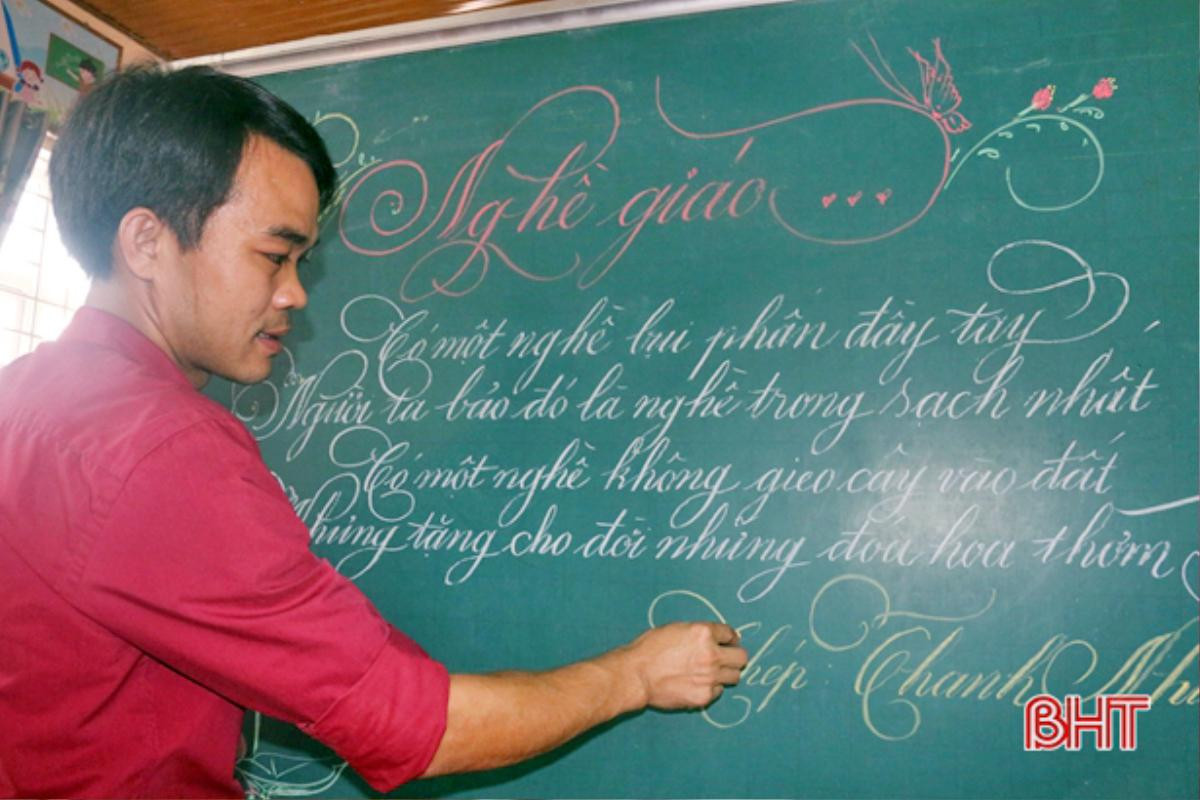 Nghề giáo ...
Có một nghề bụi phấn đầy tay
Người ta bảo đó là nghề trong sạch nhất
Có một nghề không gieo cây vào đất
Nhưng tặng cho đời những đoá hoa thơm
Chép: Thanh
BHT